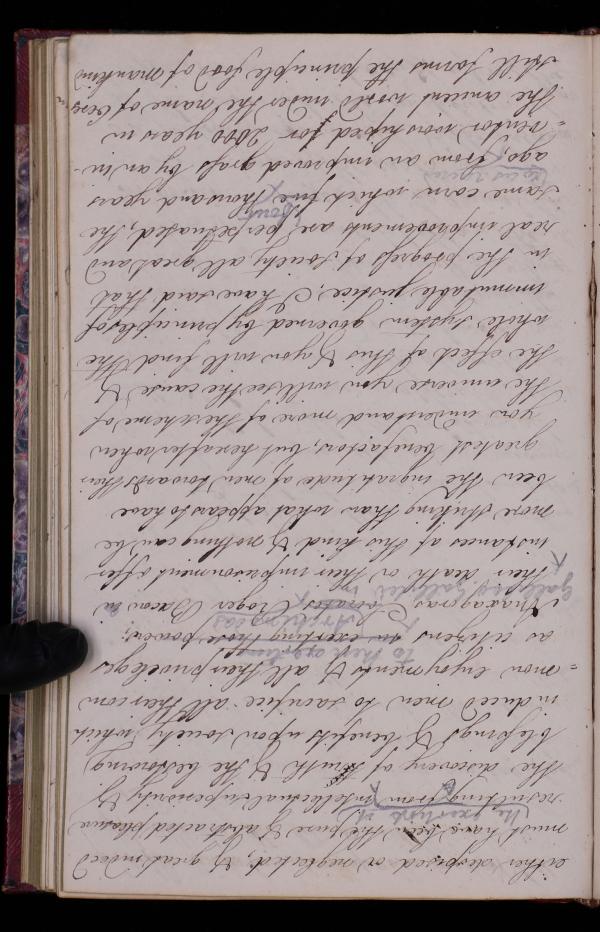 either despised or neglected; & great indeed
must have been the pure & abstracted pleasure
(the exertion of
resulting from intellectual superiority &
the discovery of truth & the bestowing
blessings & benefits upon society which
induced men to sacrifice all their com
=mon enjoyments & all their privileges
as citizens to their exertions
in exerting those powers;
Archimedes
Anaxagoras Socates Roger Bacon in
Gallileo Gallilei in
their death or their imprisonment offer
instances of this kind & nothing can be
more striking than what appears to have
been the ingratitude of men towards their
greatest benefactors, but hereafter when
you understand more of the scheme of
the universe you will see the cause &
the effect of this & you will find the
whole system governed by principles of
immutable justice. I have said that
in the progress of society all great and
real improvements are perpetuated, the
same corn which four
five thousand years
ago, from an improved grass by an in-
=ventor worshiped for 2000 years in
the ancient world under the name of Ceres
still forms the principle food of mankind